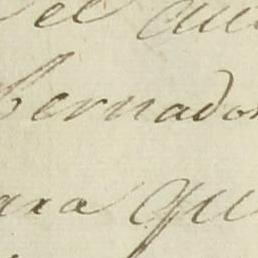 el
bernador
ara qu